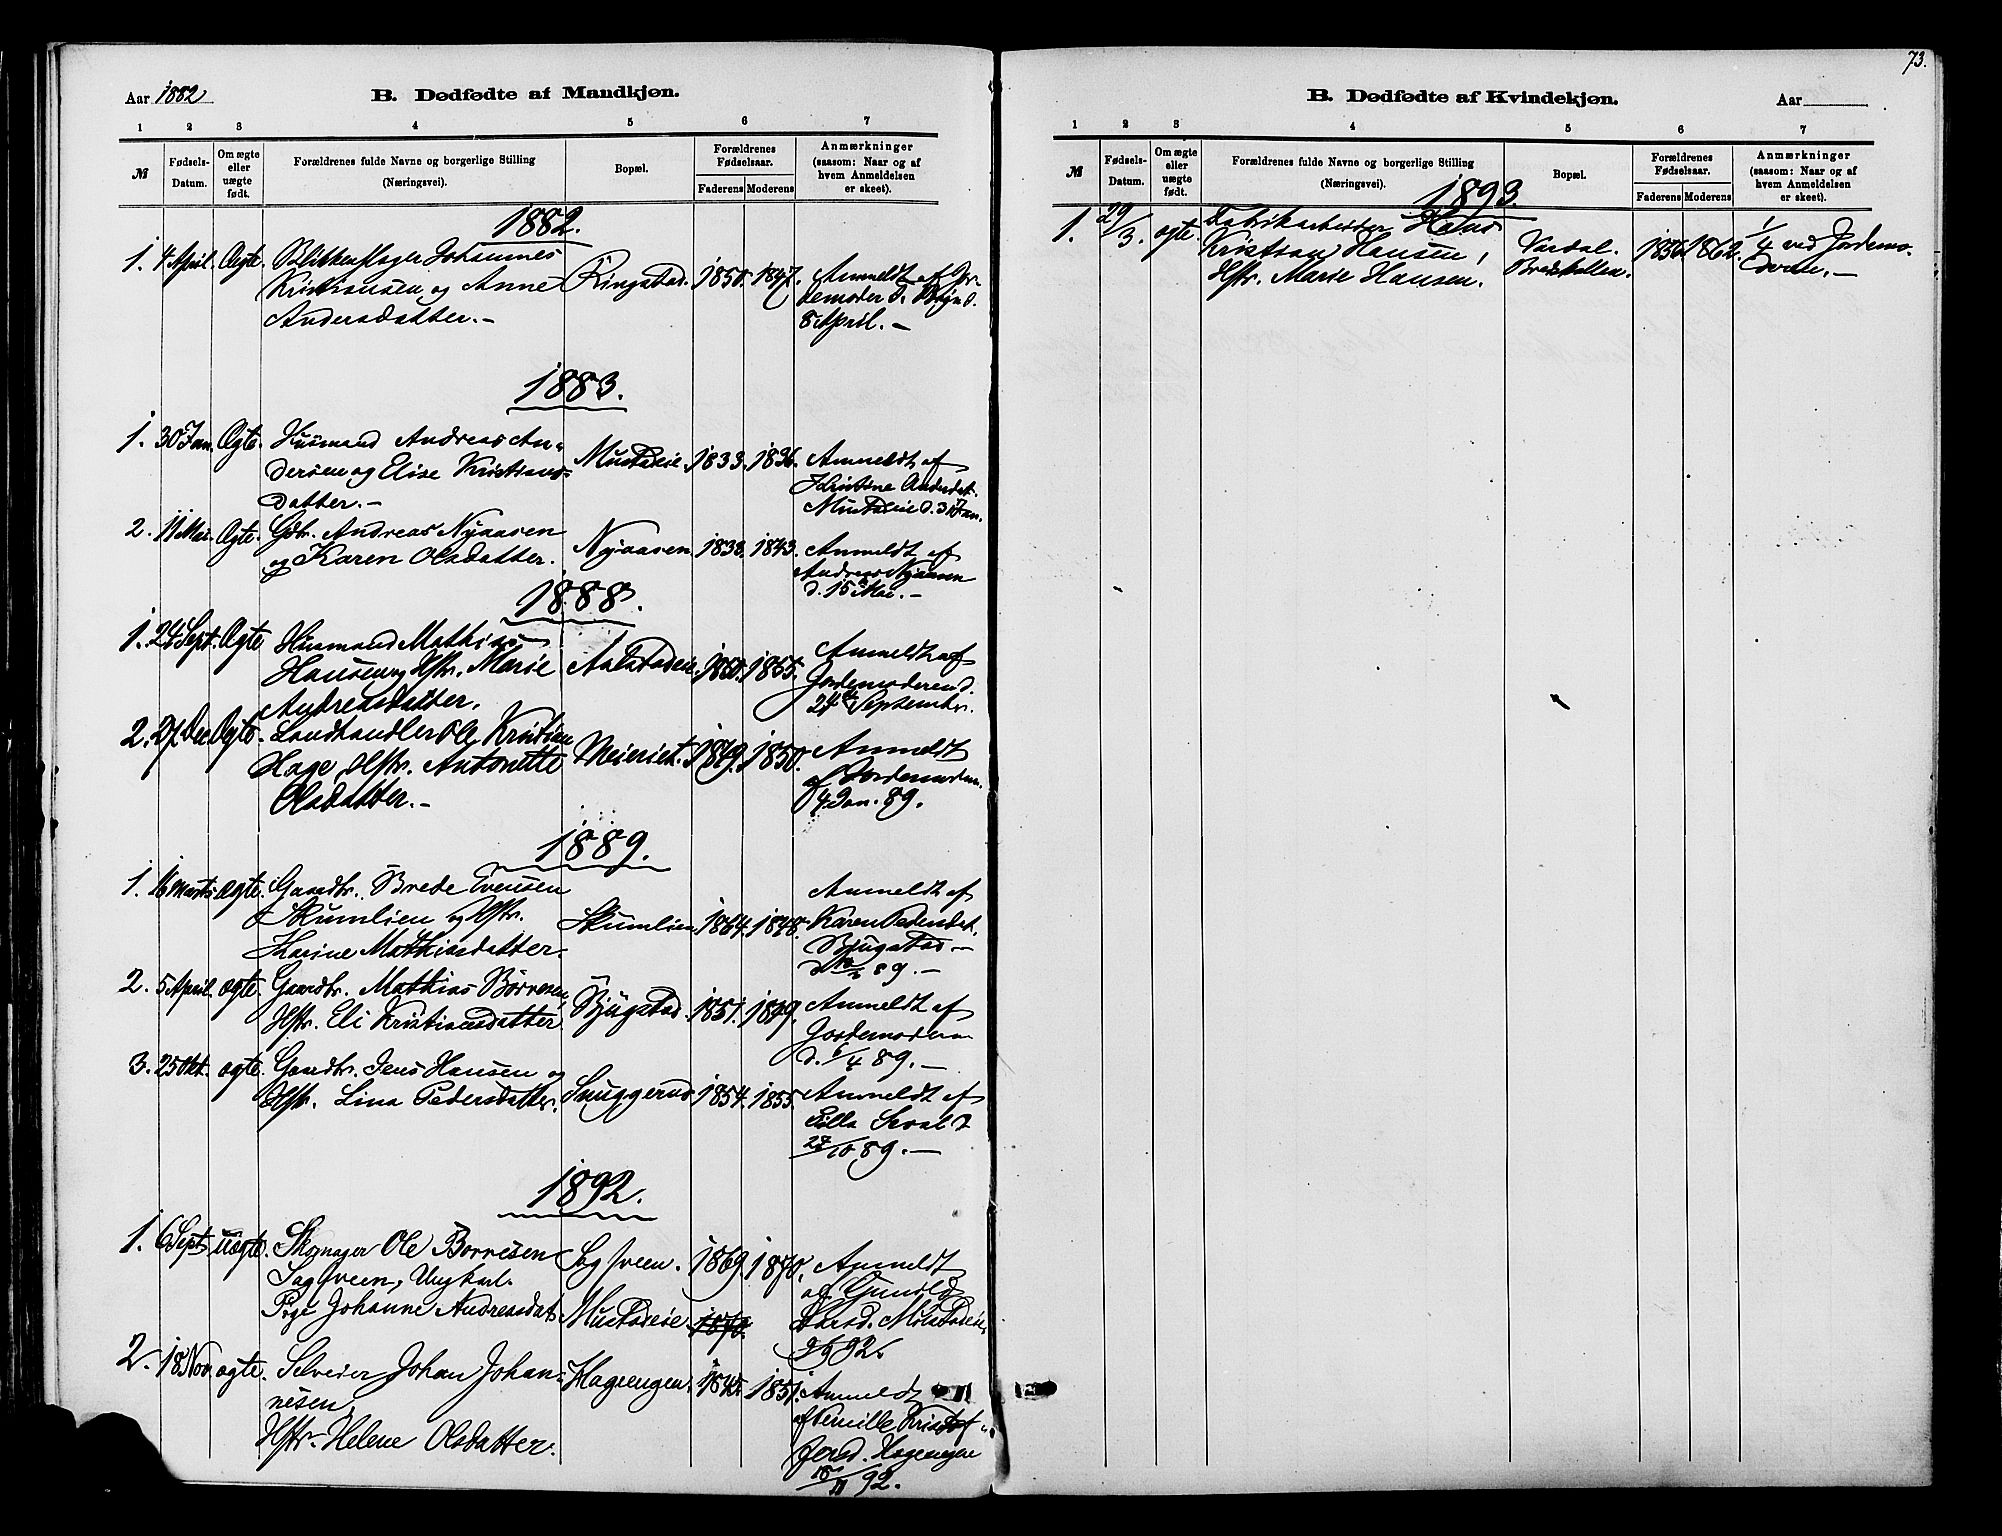 73.
Aar 1882
B. Dødfødte af Mandkjøn.
1 2 3 4 5 6 7
№ Fødsels-Datum. Om ægte eller uægte født. Forældrenes fulde Navne og borgerlige Stilling (Næringsvei). Bopæl. Forældrenes Fødselsaar. Faderens Moderens Anmærkninger (saasom: Naar og af hvem Anmeldelsen er skeet).
1882.
1. 4 April. Ægte. Blikkenslager Johannes
Kristiansen og Anne
Andersdatter. –
Ringstad. 1850. 1847.
Anmeldt af Jor-
demoder d.
8 April. –
1883.
1. 30 Jan. Ægte. Husmand Andreas An-
dersen og Elise Kristians-
datter. –
Mustadeie. 1833. 1836.
Anmeldt af
Kristine Andersdat.
Mustadeie d. 31 Jan.
2. 11 Mai. Ægte. Gdbr. Andreas Nyaasen
og Karen Olsdatter.
Nyaasen 1838. 1843.
Anmeldt af
Andreas Nyaasen
d. 15 Mai. –
1888.
1. 24 Sept. Ægte Husmand Mathias
Hansen og Hstr. Marie
Andreasdatter.
1850. 1855.
Anmeldt af
Jordemoderen d.
24de Septembr.
2. 27 Dec. Ægte. Landhandler Ole Kristian
Hage, Hstr. Antonette
Olsdatter. –
Meieriet. 1849. 1850.
Anmeldt
af Jordemoderen
4 Jan. 89.
1889.
1. 16 Marts. ægte. Gaardbr. Brede Evensen
Skumlien og Hstr.
Karine Mathiasdatter.
Skumlien 1864. 1848.
Anmeldt af
Karen Pedersdat.
Bjugstad –
89. –
2. 5 April. ægte. Gaardbr. Mathias Børresen,
Hstr. Eli Kristiansdatter
Bjugstad. 1851. 1849.
Anmeldt af
Jordemoderen
d. 6/4 89. –
3. 25 Okt. ægte. Gaardbr. Jens Hansen og
Hstr. Lina Pedersdatter.
Snuggerud 1854. 1855.
Anmeldt af
Silla
27/10 89. –
1892.
1. 6 Sept. uægte. Skomager Ole Borresen
Sagsveen, Ungkarl.
Pige Johanne Andreasdat.
Sagsveen. 1869. 1870.
Mustadeie. 1870.
Anmeldt
af Gunild
Larsd. Mustadeie
92.
2. 18 Nov. ægte. Selveier Johan Johan-
nesen,
Hstr. Helene Olsdatter.
Hageengen. 1845. 1851.
Anmeldt
af Pernille Kristof-
fersd. Hageengen
18/11 92.
B. Dødfødte af Kvindekjøn.
Aar
1 2 3 4 5 6 7
№ Fødsels-Datum. Om ægte eller uægte født. Forældrenes fulde Navne og borgerlige Stilling (Næringsvei). Bopæl. Forældrenes Fødselsaar. Faderens Moderens Anmærkninger (saasom: Naar og af hvem Anmeldelsen er skeet).
1893.
1. 29/3. ægte. Fabrikarbeider Hans
Kristian Hansen,
Hstr. Marie Hansen.
Vardal.
1856. 1862.
1/4 ved Jordemo-
deren. –